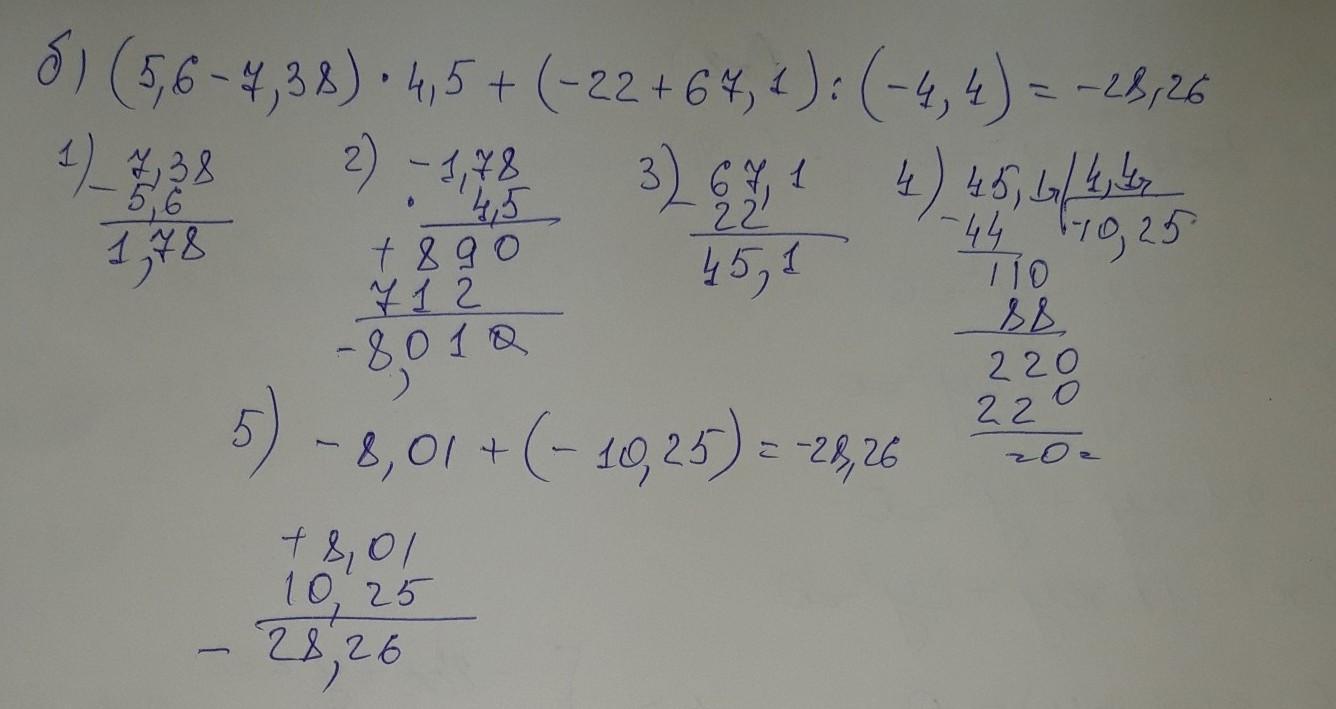 б) (5,6-7,38)·4,5+(-22+67,1):(-4,4)=-28,26
1) - 7,38
5,6
1,78
2) -1,78
· 4,5
+ 890
712
-8,010
3) - 67,1
22
45,1
4) 45,1 4,4
- 44 10,25
110
88
220
220
=0=
5) -8,01+(-10,25)=-28,26
+ 8,01
10,25
- 28,26